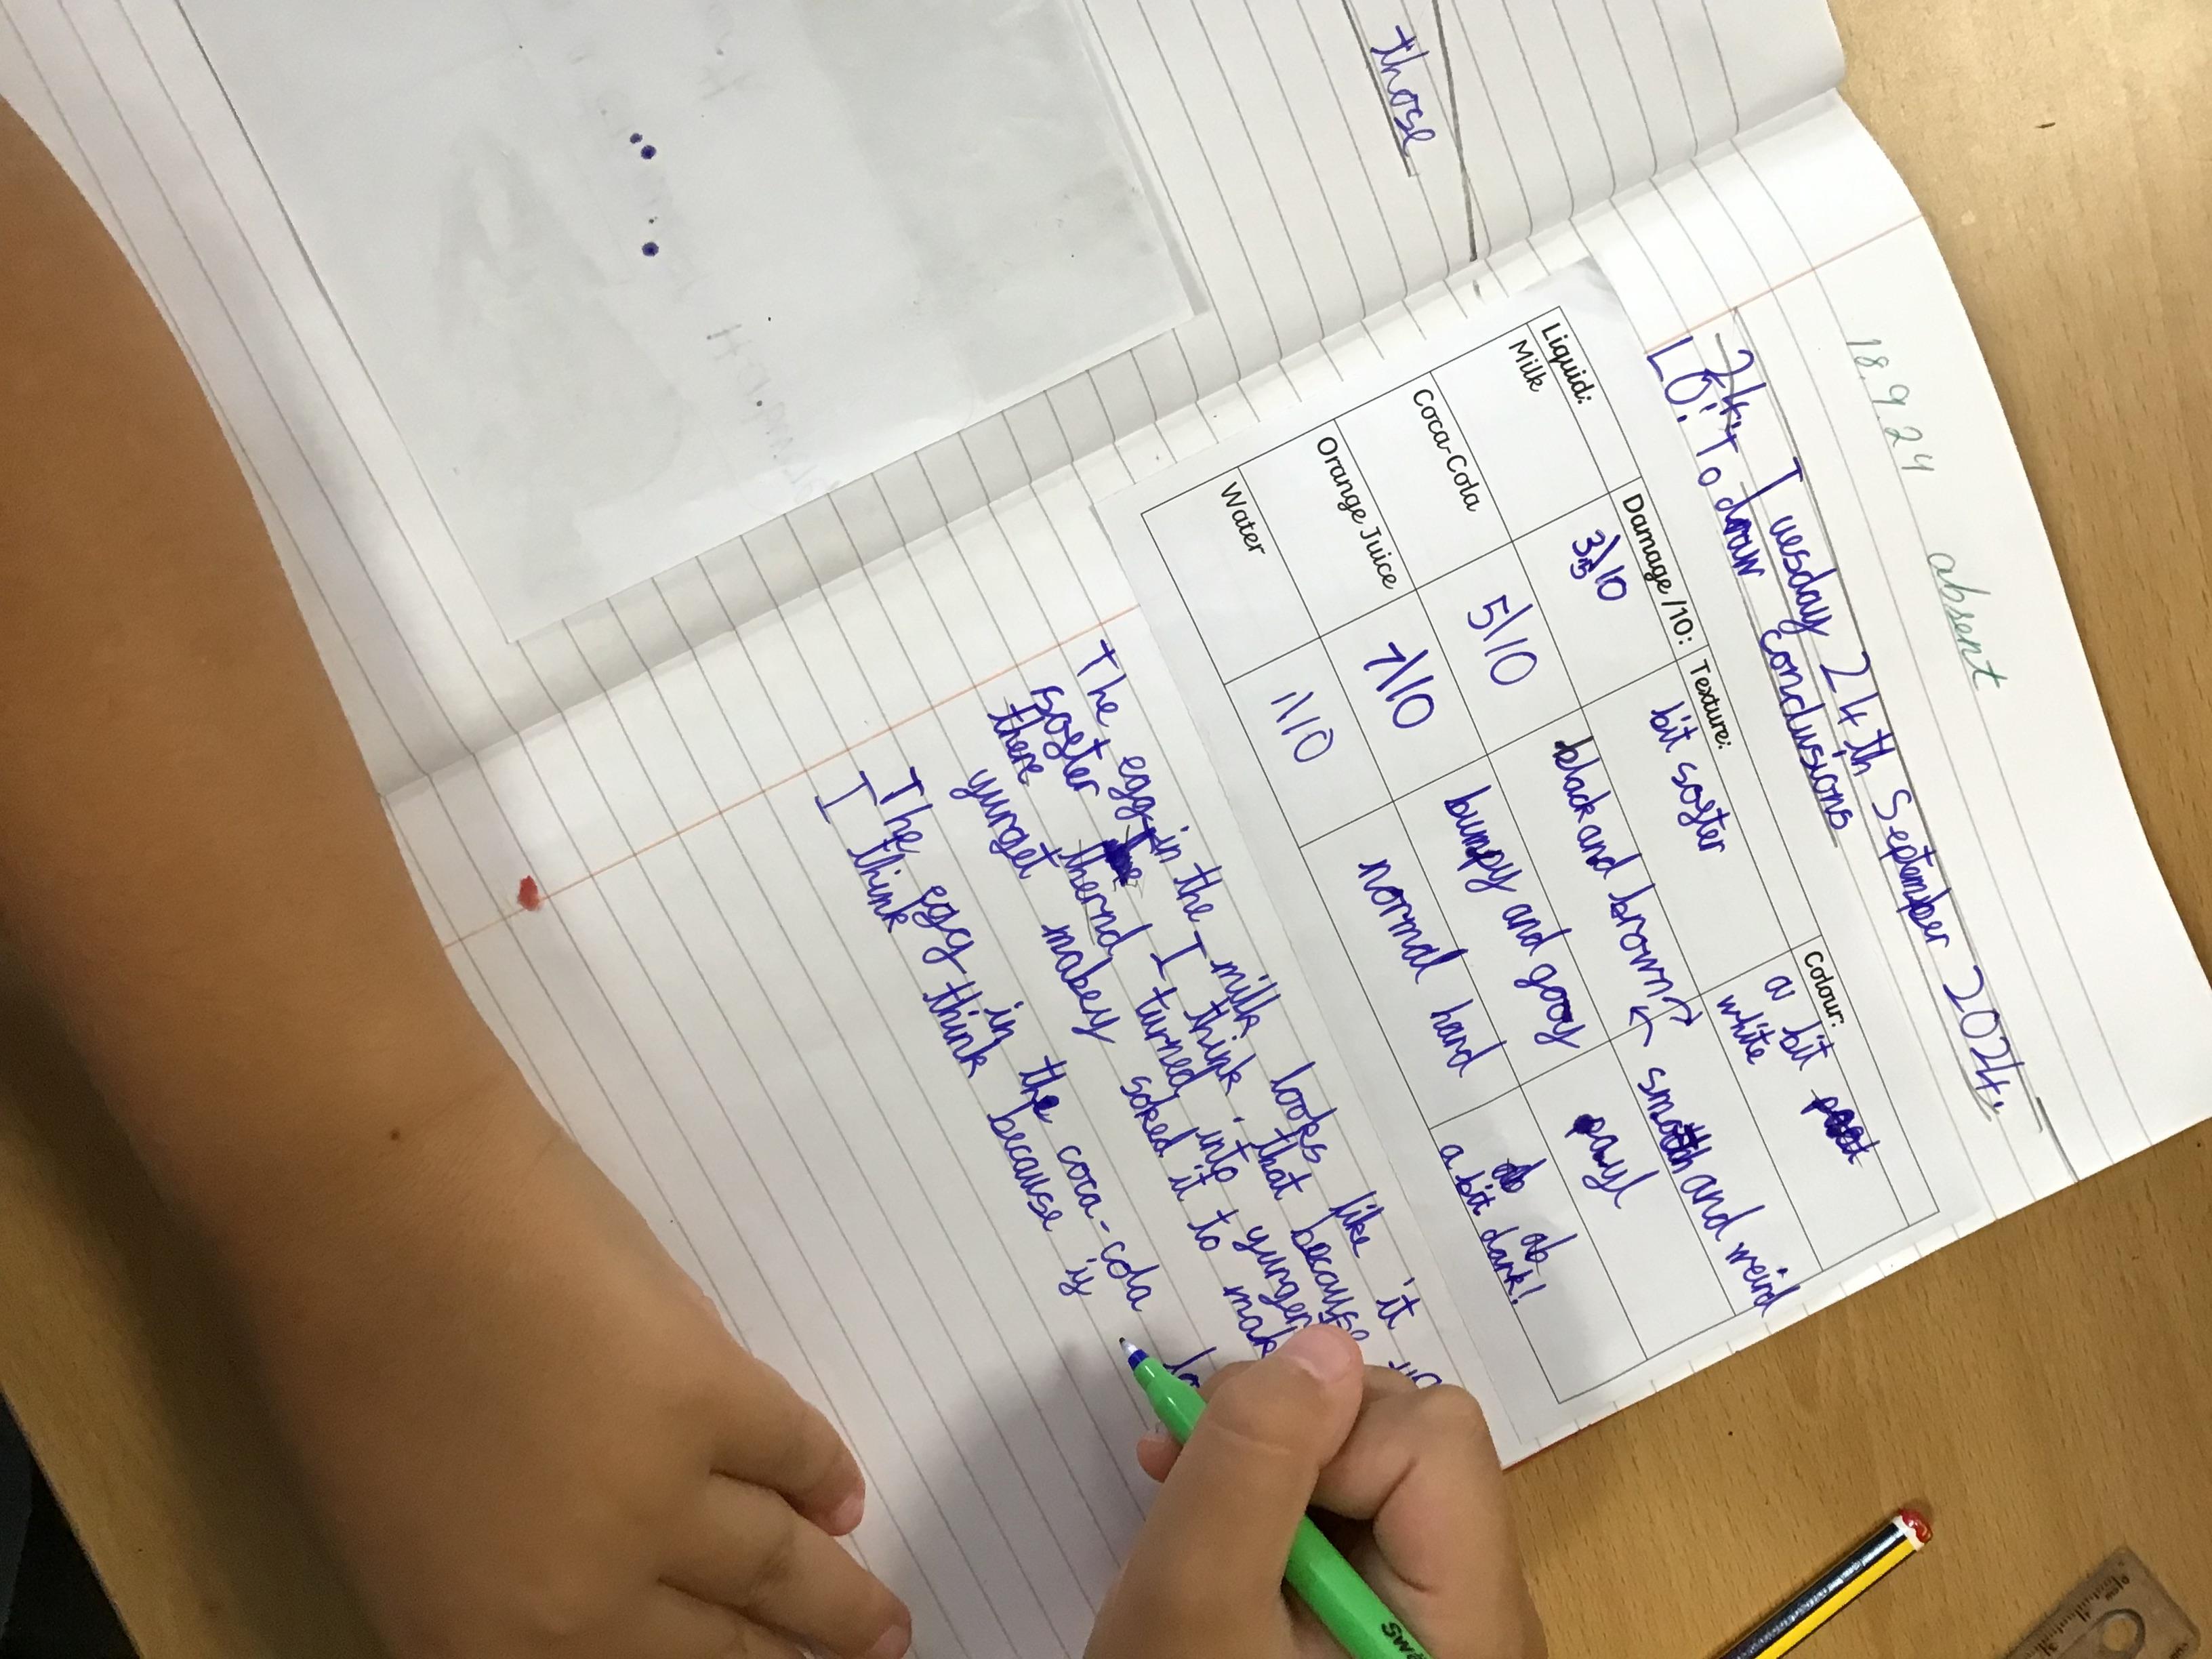 those
18.9.24 absent
Tuesday 24th September 2024.
LO: To draw conclusions
Liquid: Damage /10: Texture: Colour:
Milk 3/10 bit sogter a bit
white
Coca-Cola 5/10 black and brown smooth and weird
Orange Juice 7/10 bumpy and gooy
Water 1/10 normal hard
a bit dark!
The egg in the milk looks like it
sogter I think that because
there thernd turned into
yurget mabey soked it to
The egg in the coca-cola
I think think because iy